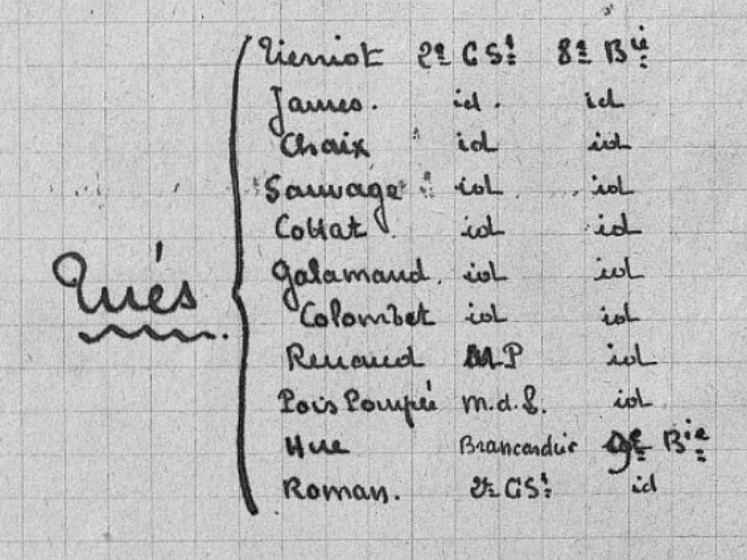 Tués
Pierriot 2e CSt 8e Bie
James. id. id
Chaix id id
Sauvage id id
Collat id id
Galamand. id id
Colombet id id
Renaud MP id
Pois Poupée m.d.L. id
Hue Brancardier 9e Bie
Roman. 2e CSt id